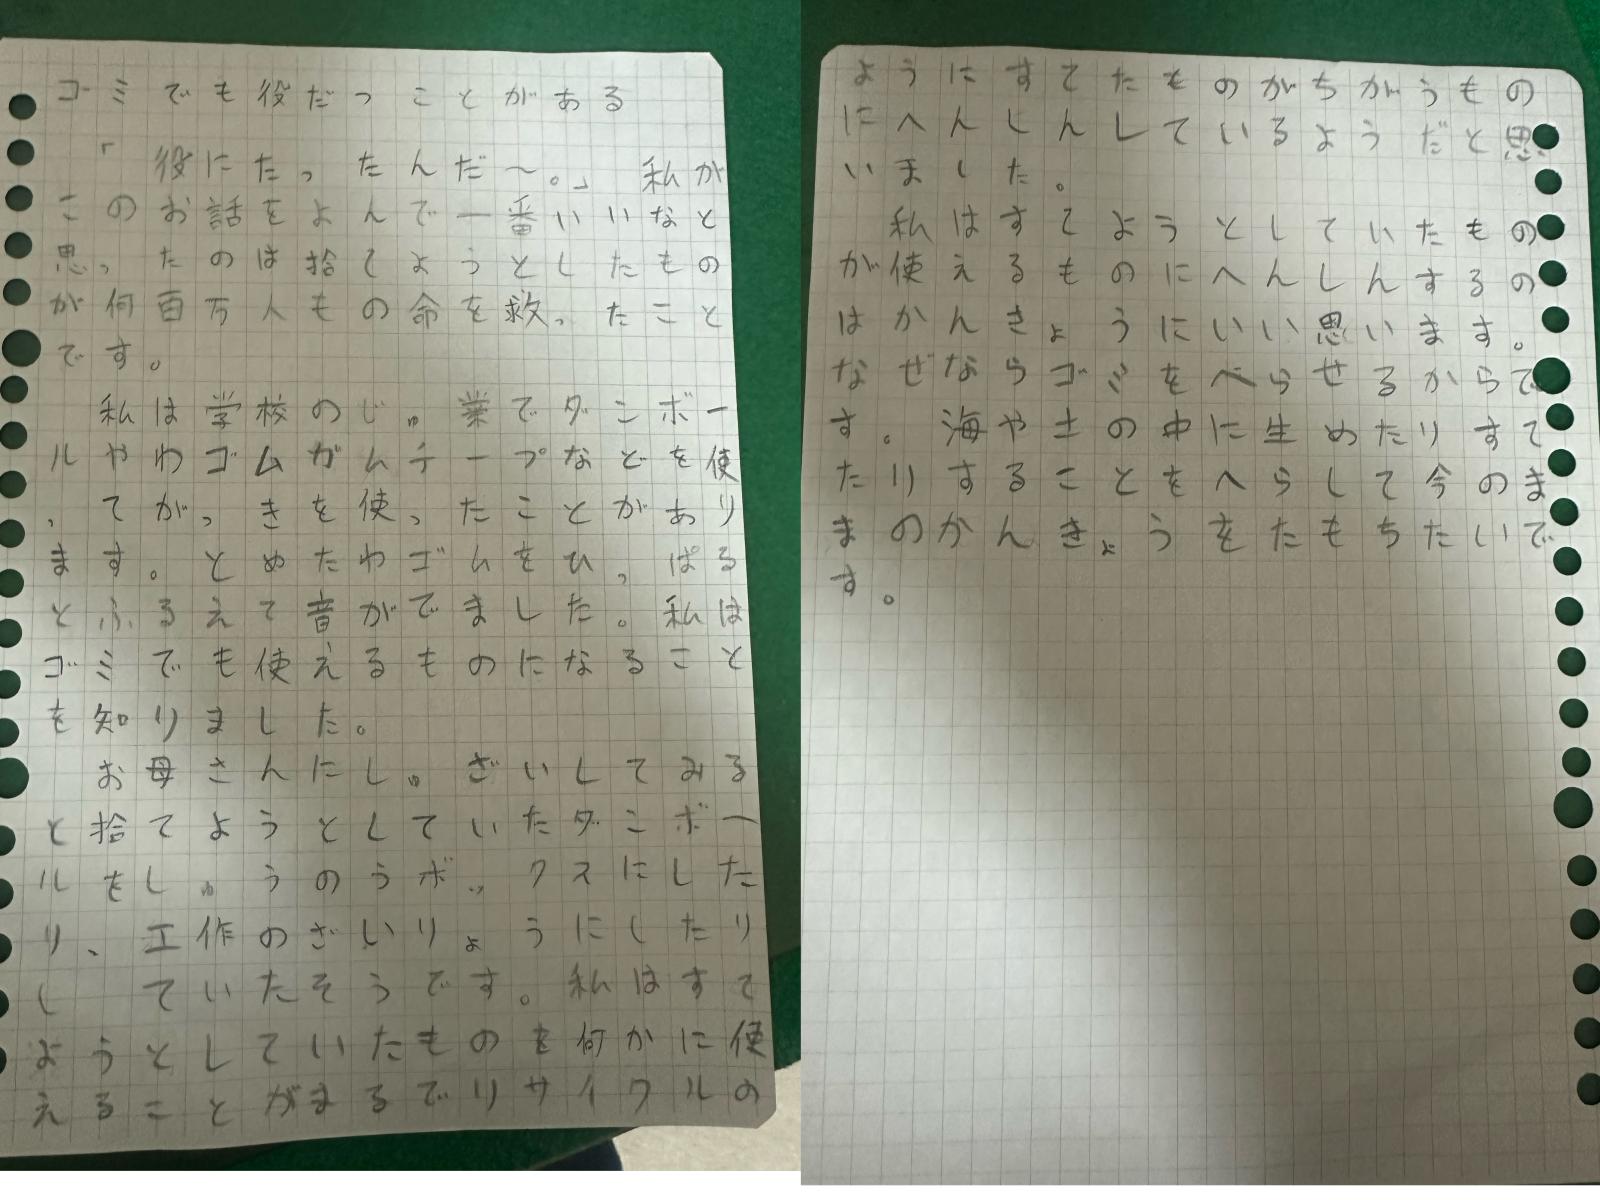 ゴミでも役だつことがある
「役にたったんだ～。」 私が
このお話をよんで一番いいなと
思ったのは拾てようとしたもの
が何百万人もの命を救ったこと
です。
私は学校のじゅ業でダンボー
ルやわゴムガムテープなどを使
ってがっきを使ったことがあり
ます。とめたわゴムをひっぱる
とふるえて音がでました。私は
ゴミでも使えるものになること
を知りました。
お母さんにしゅざいしてみる
と拾てようとしていたダンボー
ルをしゅうのうボックスにした
り、工作のざいりょうにしたり
し ていたそうです。私はすて
ようとしていたものを何かに使
えることがまるでリサイクルの
ようにすてたものがちがうもの
にへんしんしているようだと思
いました。
私はすてようとしていたもの
が使えるものにへんしんするの
はかんきょうにいい思います。
なぜならゴミをへらせるからで
す。海や土の中に生めたりすて
たりすることをへらして今のま
まのかんきょうをたもちたいで
す。